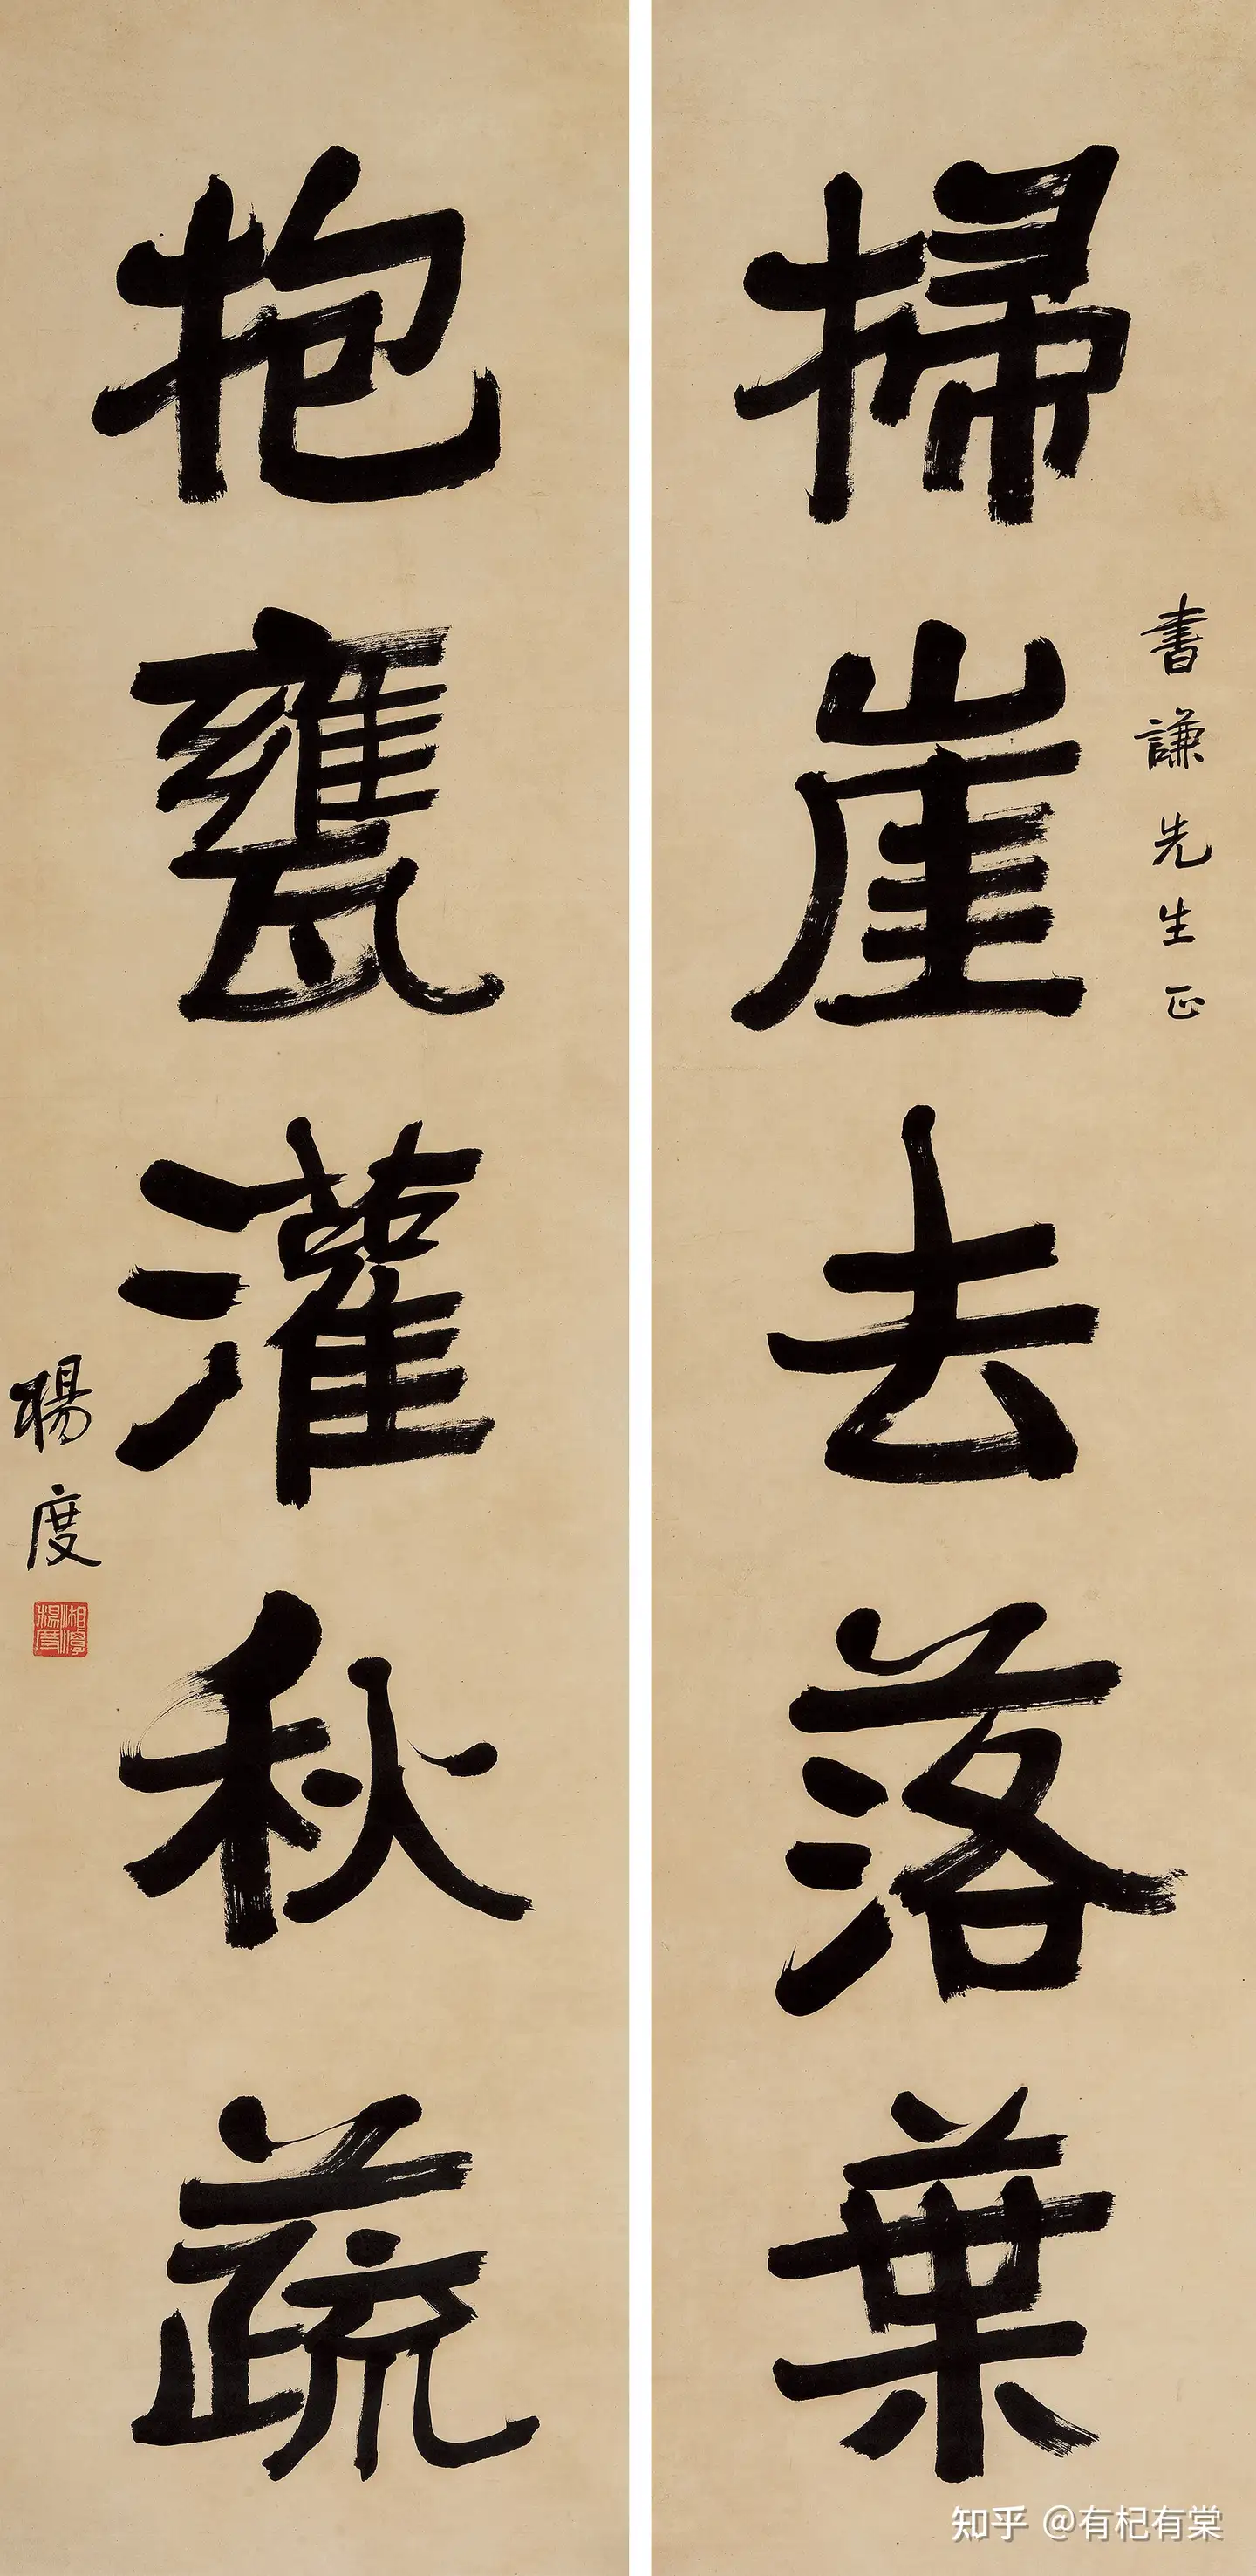 書謙先生正
掃崖去落葉
抱甕灌秋蔬
楊度
湘潭楊度
知乎 @有杞有棠